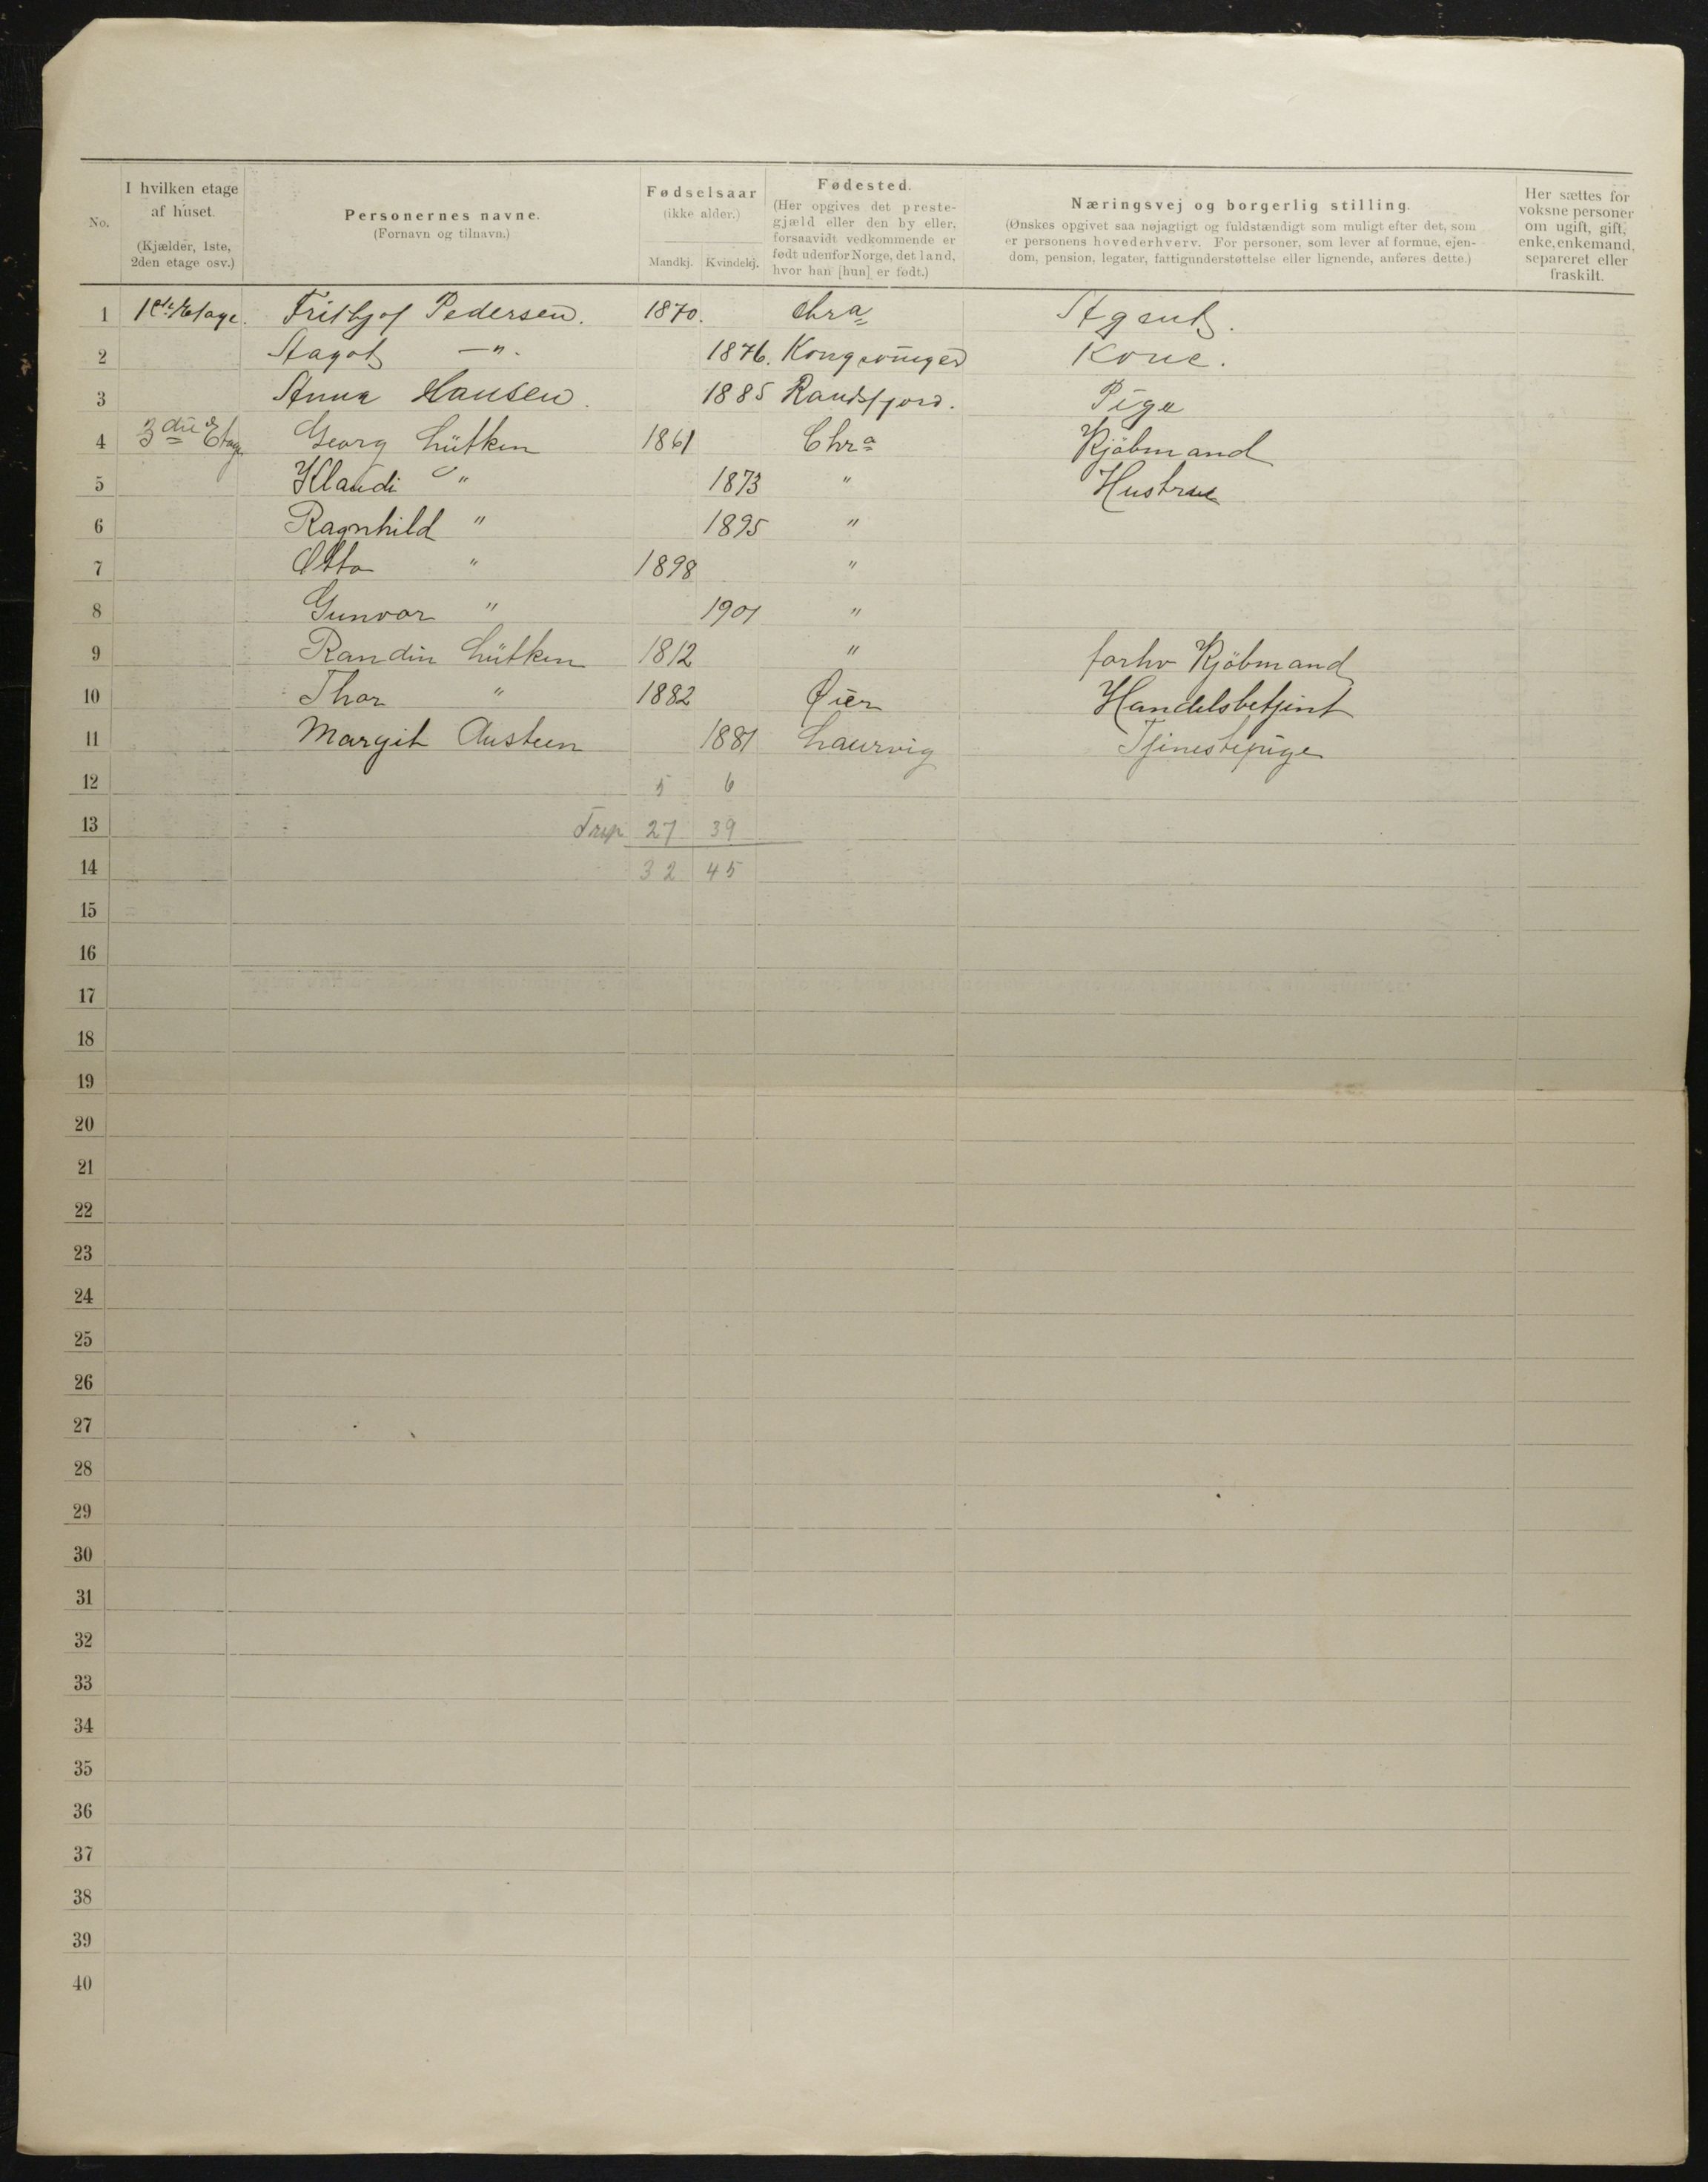 No.
I hvilken etage af huset.
(Kjælder, 1ste, 2den etage osv.)
Personernes navne.
(Fornavn og tilnavn.)
Fødselsaar
(ikke alder.)
Mandkj. Kvindekj.
Fødested.
(Her opgives det prestegjæld eller den by eller, forsaavidt vedkommende er født udenfor Norge, det land, hvor han [hun] er født.)
Næringsvej og borgerlig stilling.
(Ønskes opgivet saa nøjagtigt og fuldstændigt som muligt efter det, som er personens hovederhverv. For personer, som lever af formue, ejendom, pension, legater, fattigunderstøttelse eller lignende, anføres dette.)
Her sættes for voksne personer om ugift, gift, enke, enkemand, separeret eller fraskilt.
1 1ste Etage. Fritbjof Pedersen. 1870. Chra Agent.
2 Aagot —"—. 1876. Kongsvinger Kone.
3 Anna Hansen. 1885 Randsfjord. Pige
4 3die Etage Georg Lütken 1861 Chra Kjöbmand
5 Klaudi " 1873 " Hustrue
6 Ragnhild " 1895 "
7 Otto " 1898 "
8 Gunvor " 1901 "
9 Randin Lütken 1812 " forhv Kjöbmand
10 Thor " 1882 Øier Handelsbetjent
11 Margit Austeen 1881 Laurvig Tjenestepige
12 5 6
13 27 39
14 32 45
15
16
17
18
19
20
21
22
23
24
25
26
27
28
29
30
31
32
33
34
35
36
37
38
39
40